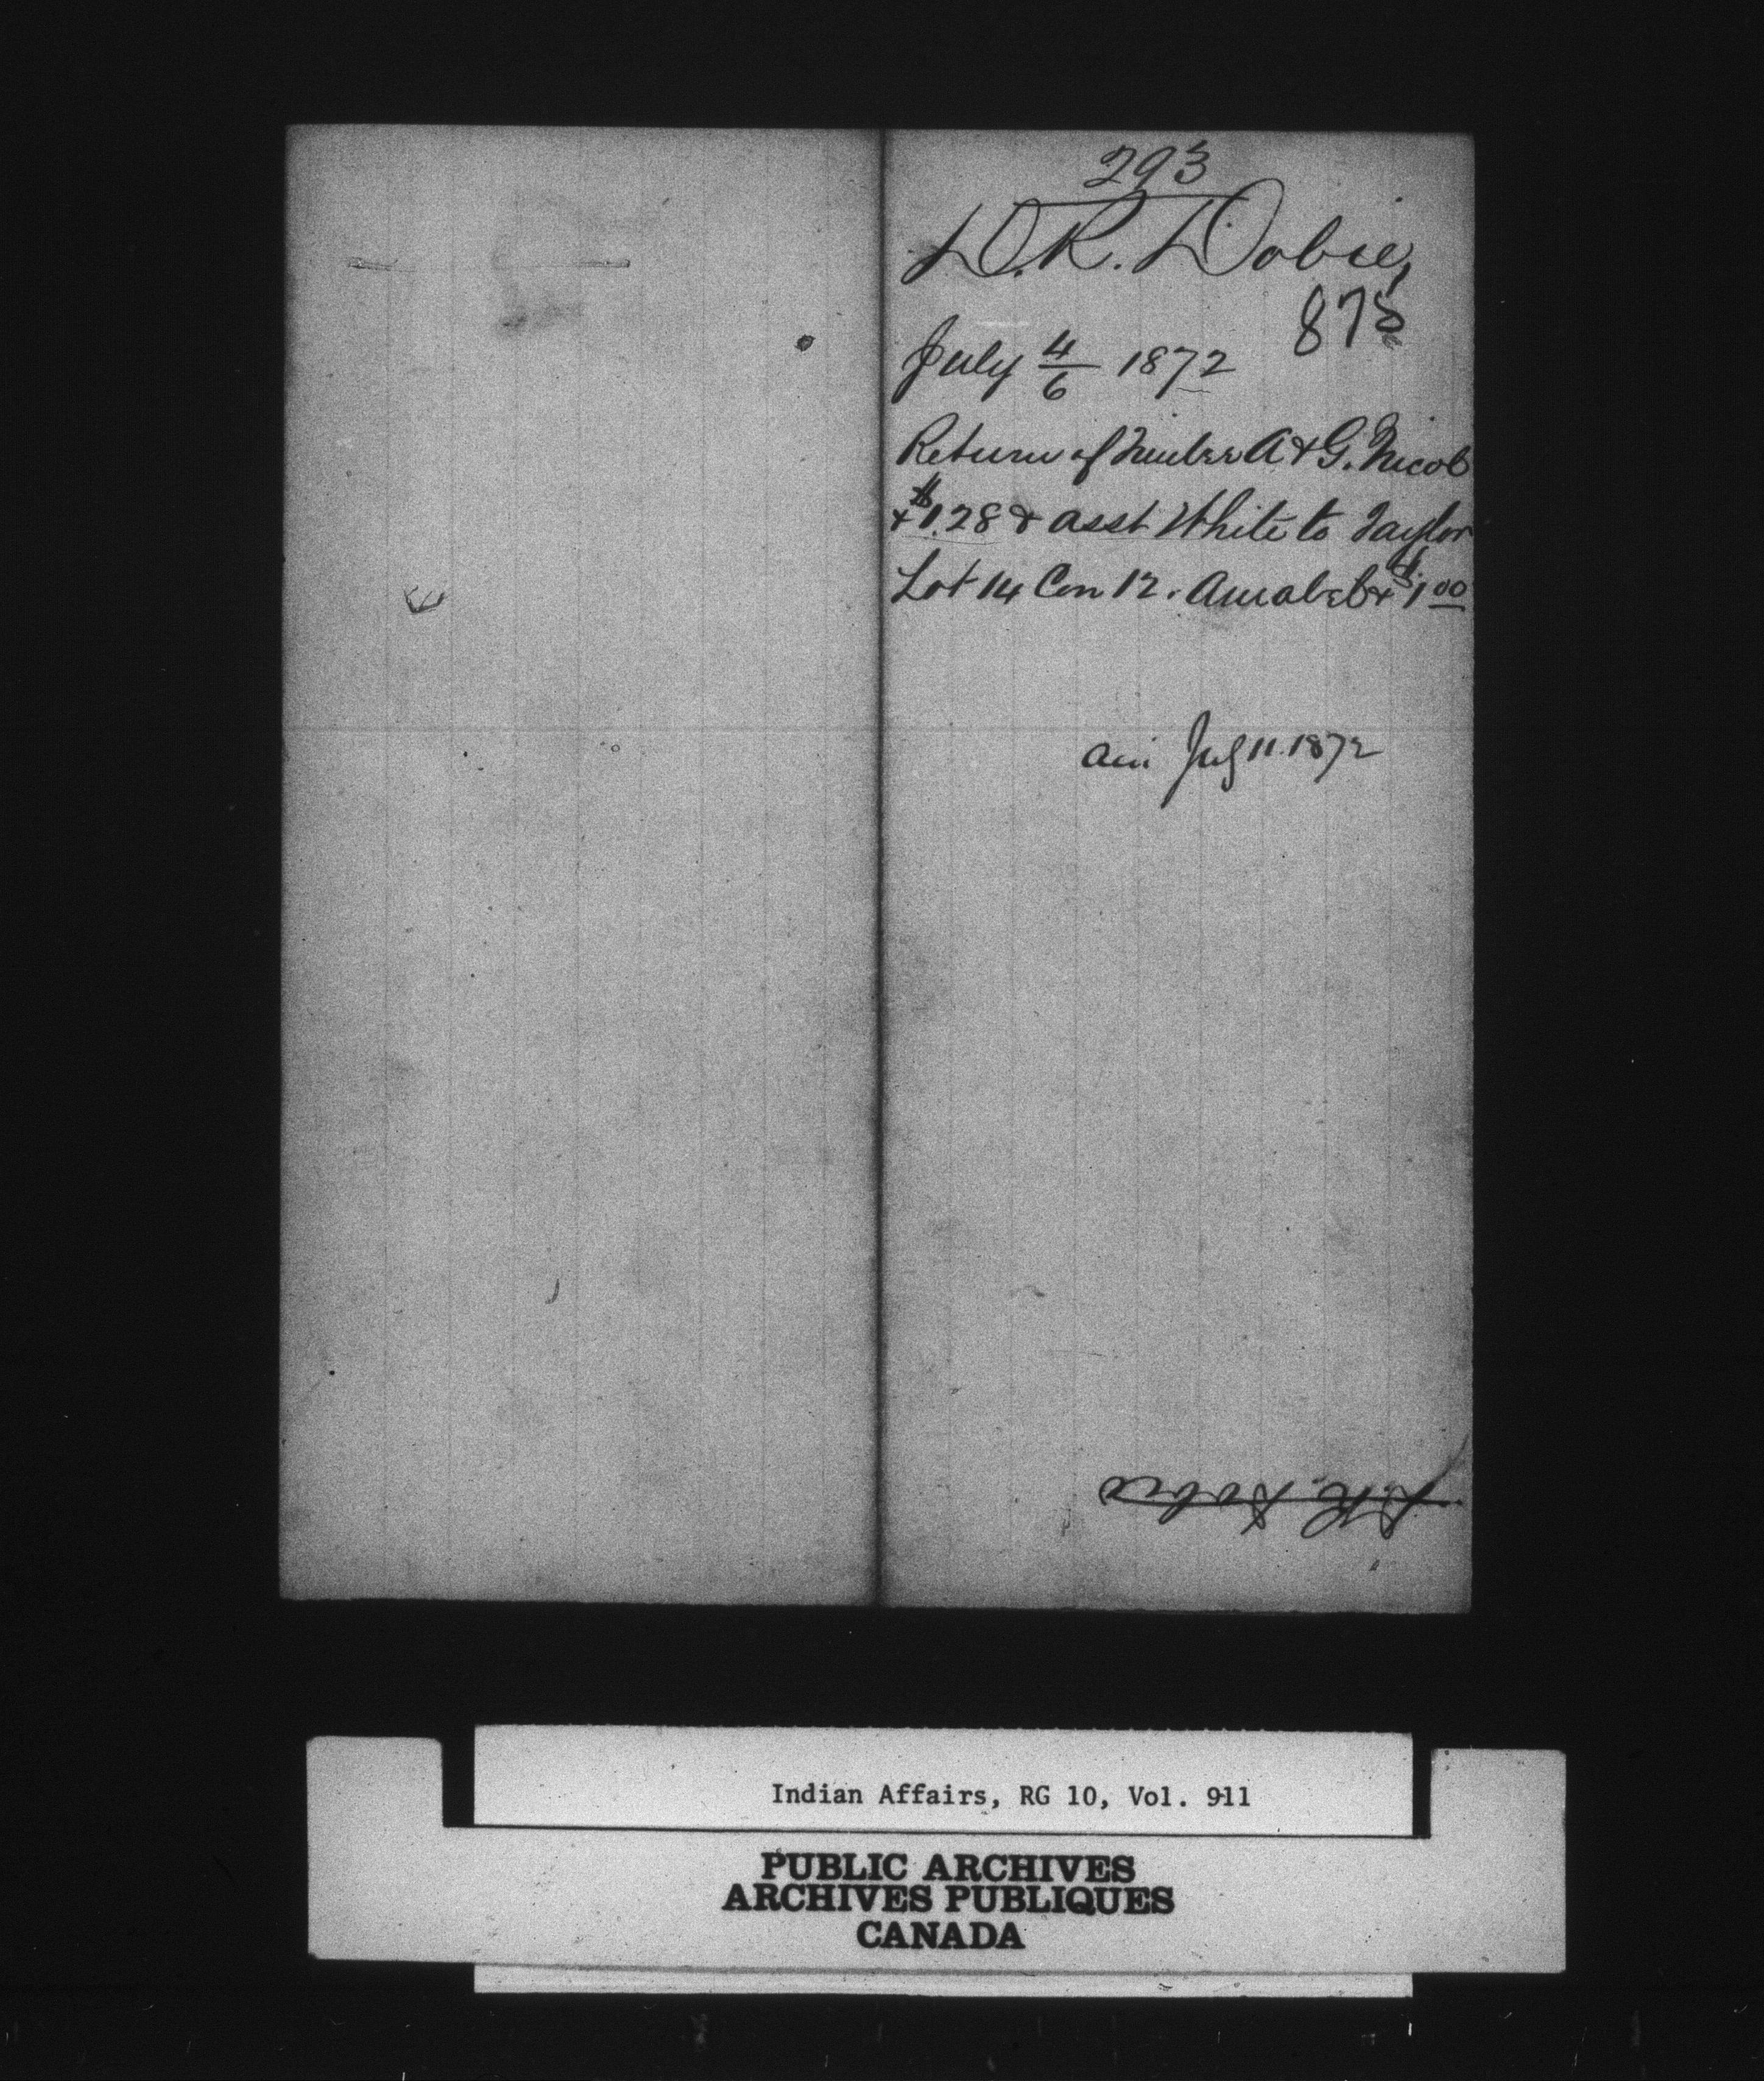 293
D. R. Dobie,
875
July 4/6 1872
Return of Timber A & G. Nicol
& $1.28 & asst White to Taylor
Lot 14 Con 12. Amabel & $1.00
July 11. 1872
D. R. Dobie
Indian Affairs, RG 10, Vol. 911
PUBLIC ARCHIVES
ARCHIVES PUBLIQUES
CANADA